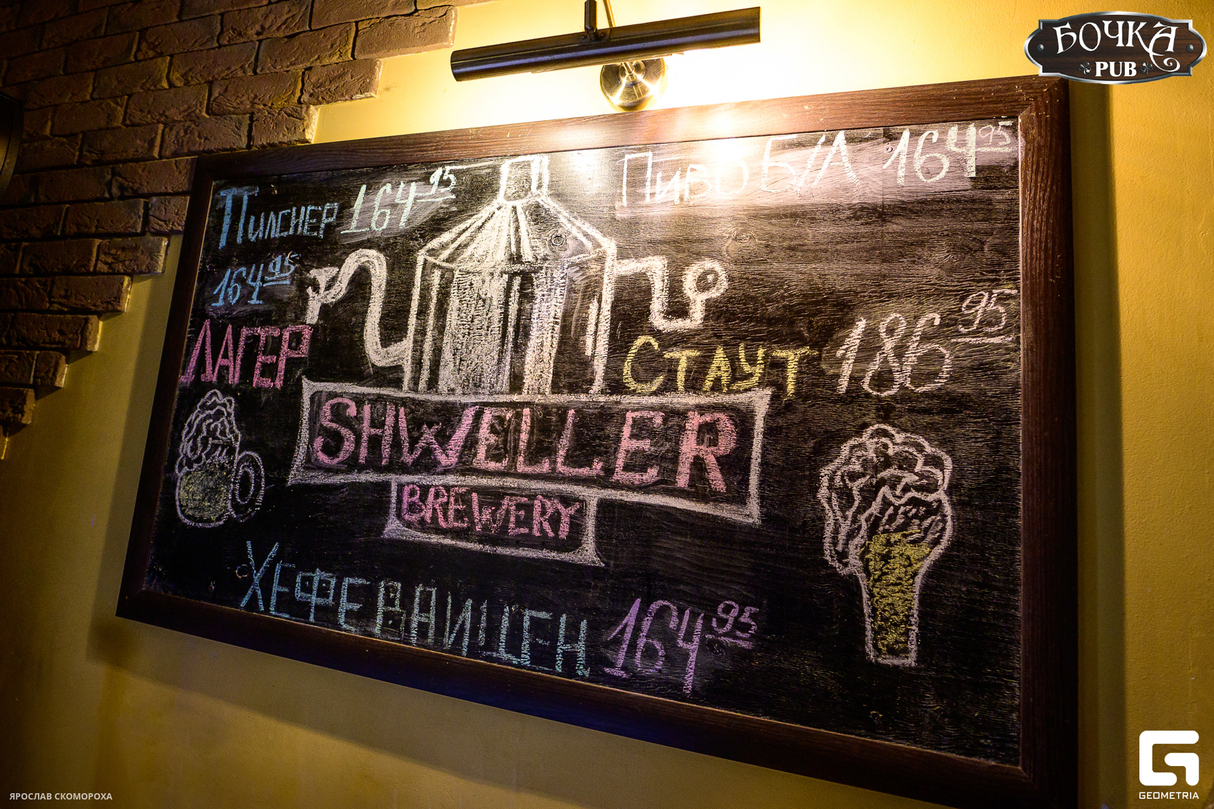 БОЧКА
PUB
Пилснер 164 95
Пиво Б/А 164 95
164 95
ЛАГЕР
СТАУТ 186 95
SHWELLER
BREWERY
ХЕФЕВАЙЦЕН 164 95
ЯРОСЛАВ СКОМОРОХА
GEOMETRIA